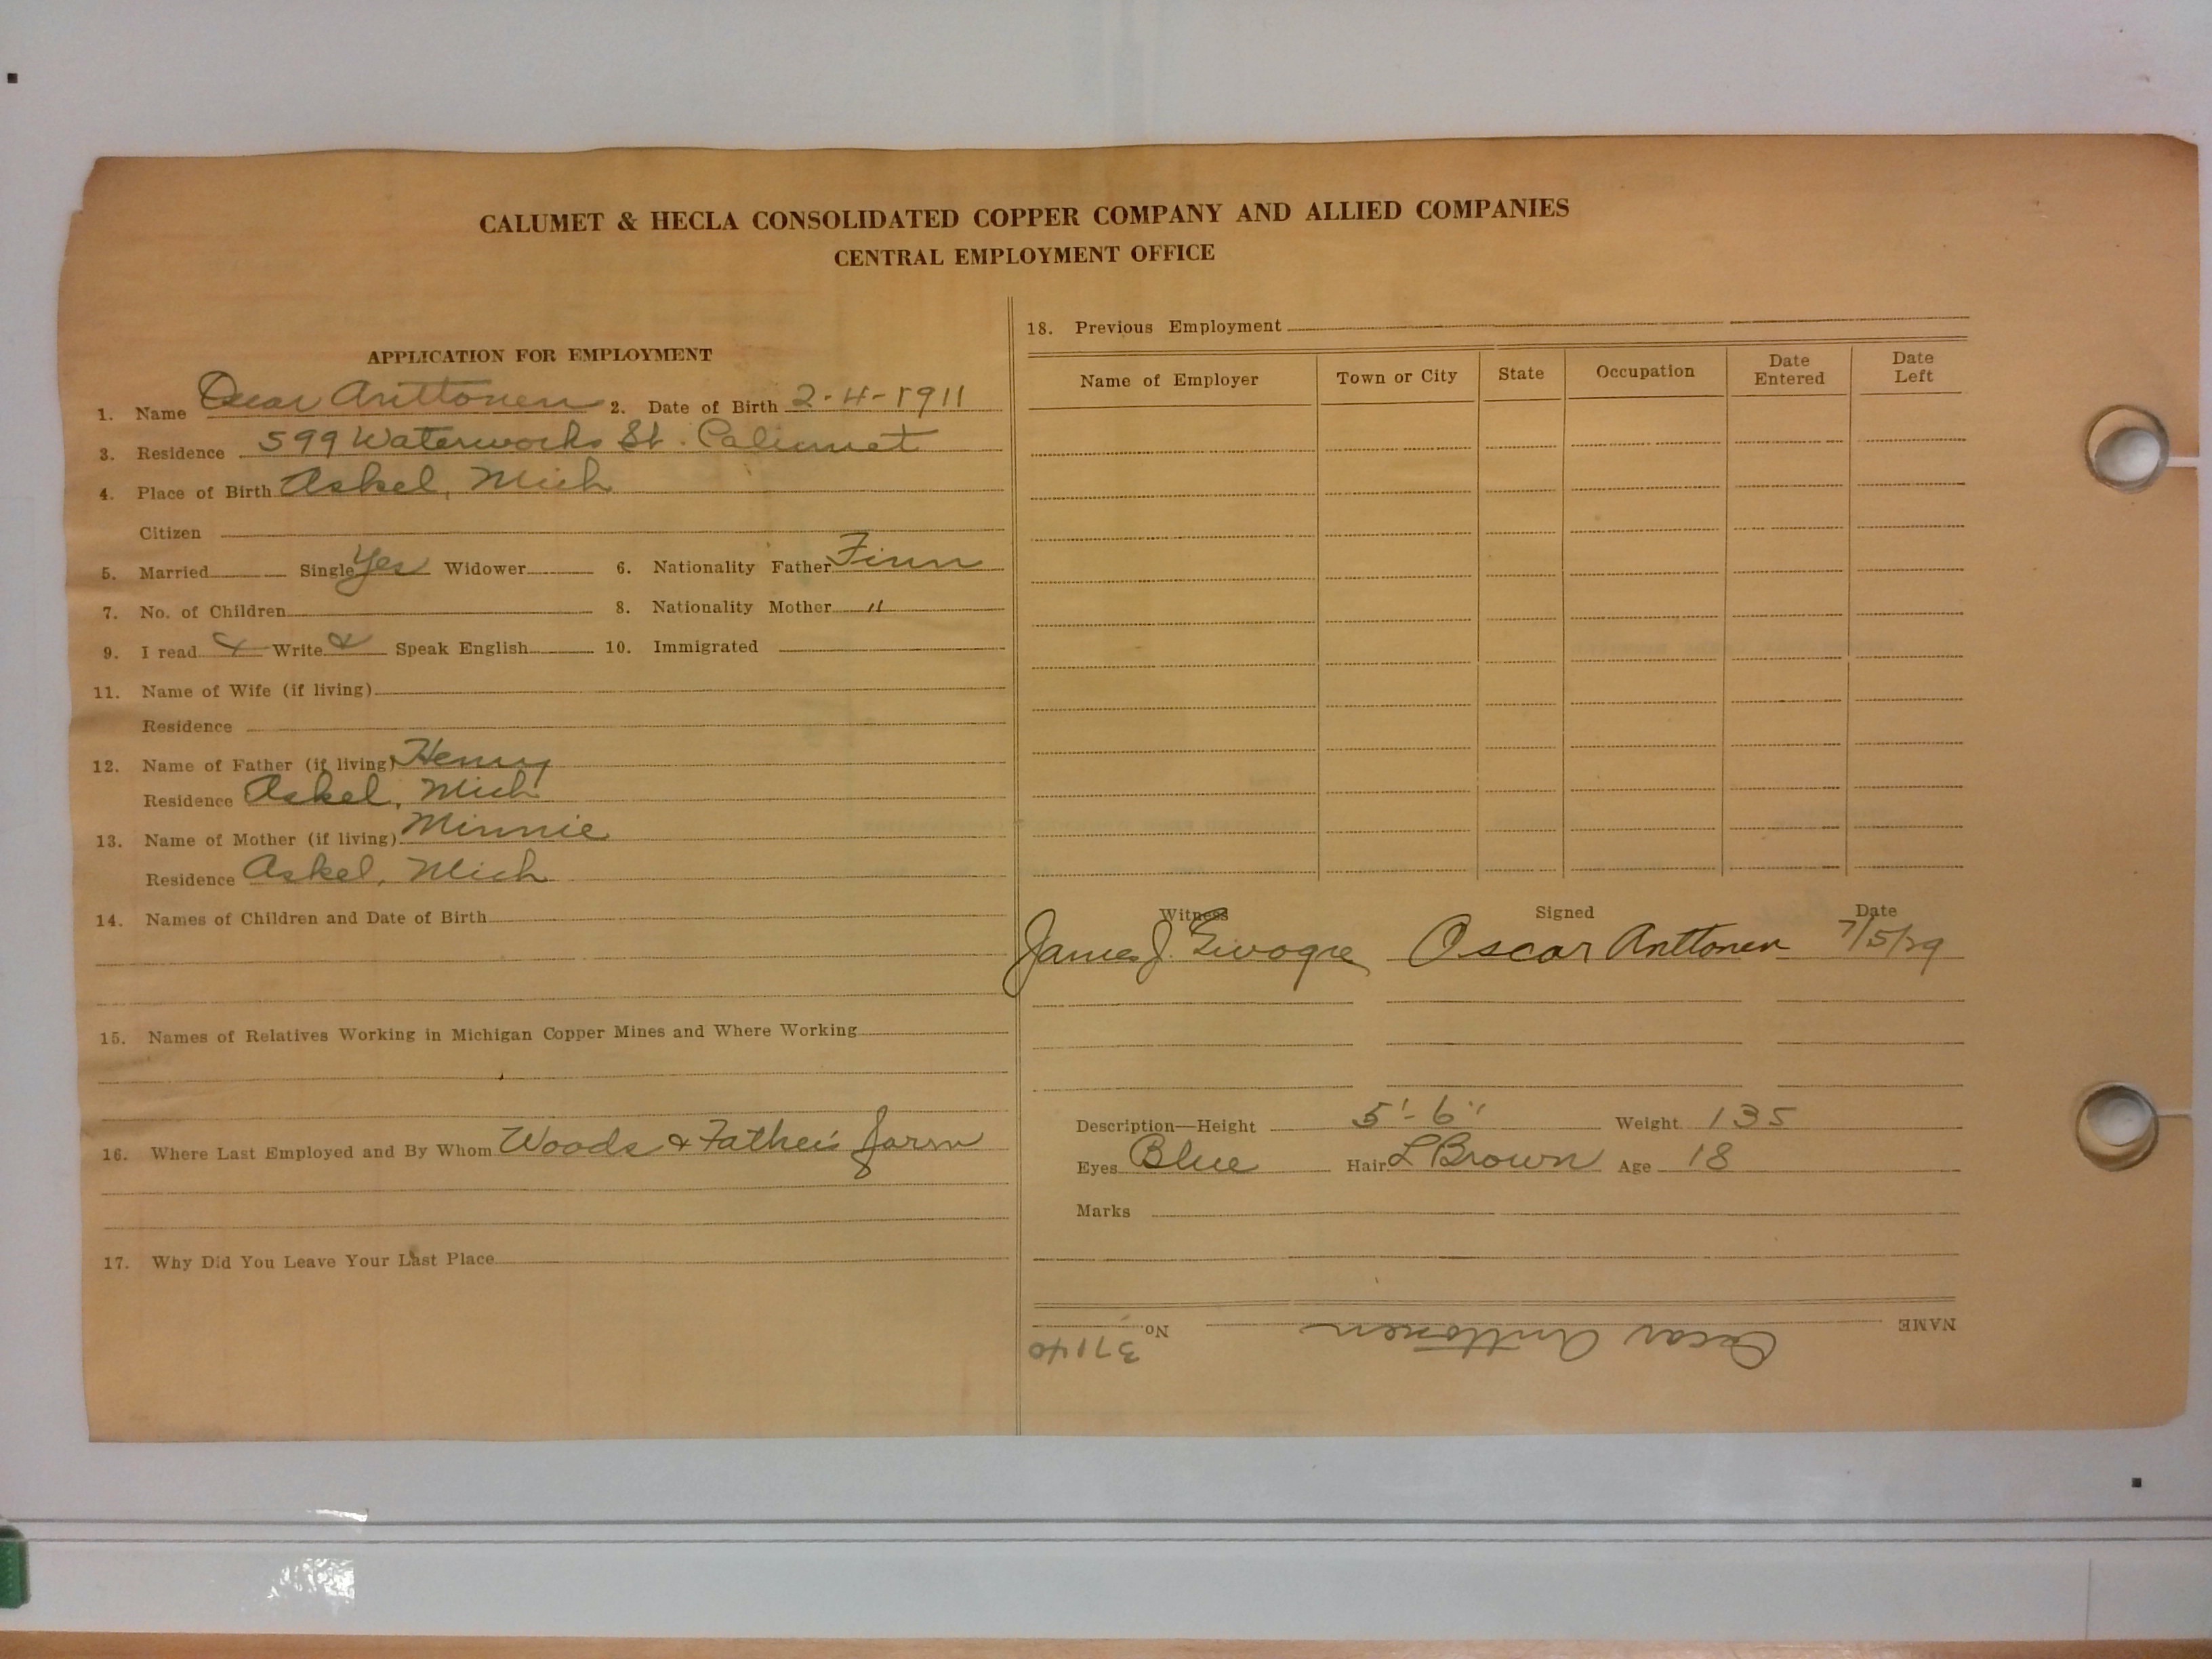 CALUMET & HECLA CONSOLIDATED COPPER COMPANY AND ALLIED COMPANIES
CENTRAL EMPLOYMENT OFFICE
APPLICATION FOR EMPLOYMENT
1. Name Oscar Anttonen 2. Date of Birth 2-4-1911
3. Residence 599 Waterworks St. Calumet
4. Place of Birth Askel, Mich
Citizen
5. Married Single Yes Widower 6. Nationality Father Finn
7. No. of Children 8. Nationality Mother "
9. I read & Write & Speak English 10. Immigrated
11. Name of Wife (if living)
Residence
12. Name of Father (if living) Henry
Residence Askel, Mich
13. Name of Mother (if living) Minnie
Residence Askel, Mich
14. Names of Children and Date of Birth
15. Names of Relatives Working in Michigan Copper Mines and Where Working
16. Where Last Employed and By Whom Woods & Father's farm
17. Why Did You Leave Your Last Place
18. Previous Employment
Name of Employer Town or City State Occupation Date Entered Date Left
Witness Signed Date
James J. Oscar Anttonen 7/5/29
Description—Height 5'-6" Weight 135
Eyes Blue Hair L Brown Age 18
Marks
NAME Oscar Anttonen No. 37140